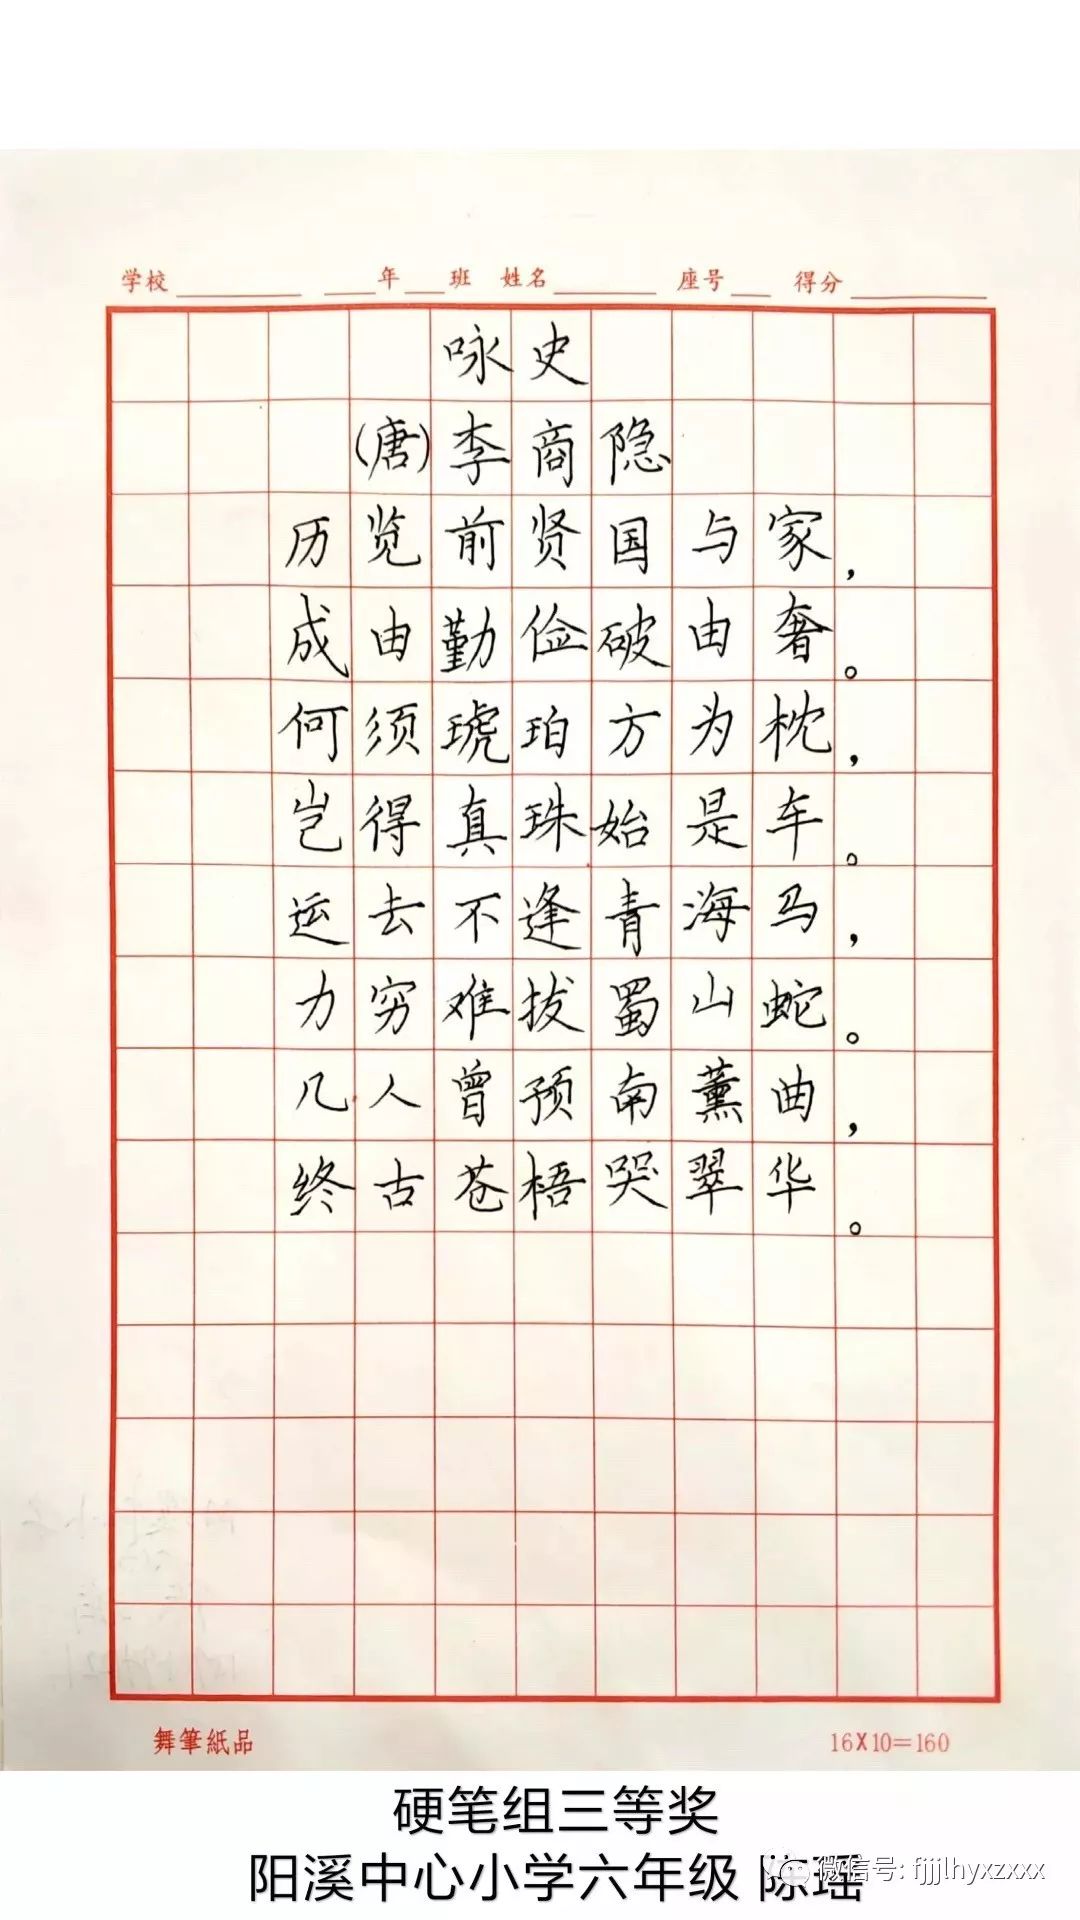 学校 年 班 姓名 座号 得分
咏史
(唐)李商隐
历览前贤国与家，
成由勤俭破由奢。
何须琥珀方为枕，
岂得真珠始是车。
运去不逢青海马，
力穷难拔蜀山蛇。
几人曾预南薰曲，
终古苍梧哭翠华。
舞筆紙品 16X10=160
硬笔组三等奖
阳溪中心小学六年级 陈瑶
微信号: fjjjlhyxzxxx